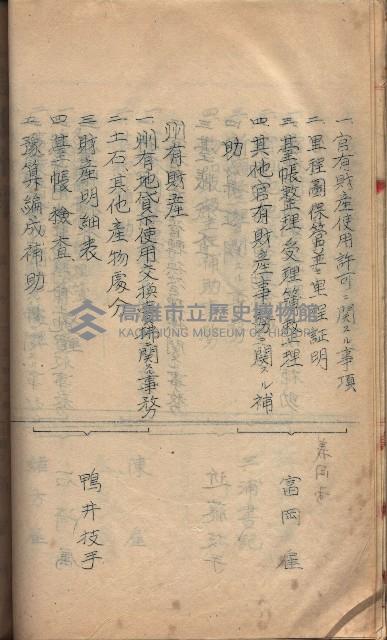 一、官有財産使用許可ニ関スル事項
二、里程圖保管並ニ里程証明
三、基帳整理、受理簿整理
四、其他官有財産事務ニ関スル補
助
富岡雇
州有財産
一、州有地貸下使用交換 ニ関スル事務
二、土石、其他産物處分
三、財産明細表
四、基帳ノ検査
五、豫算編成補助
鴨井技手
高雄市立歷史博物館
KAOHSIUNG MUSEUM OF HISTORY